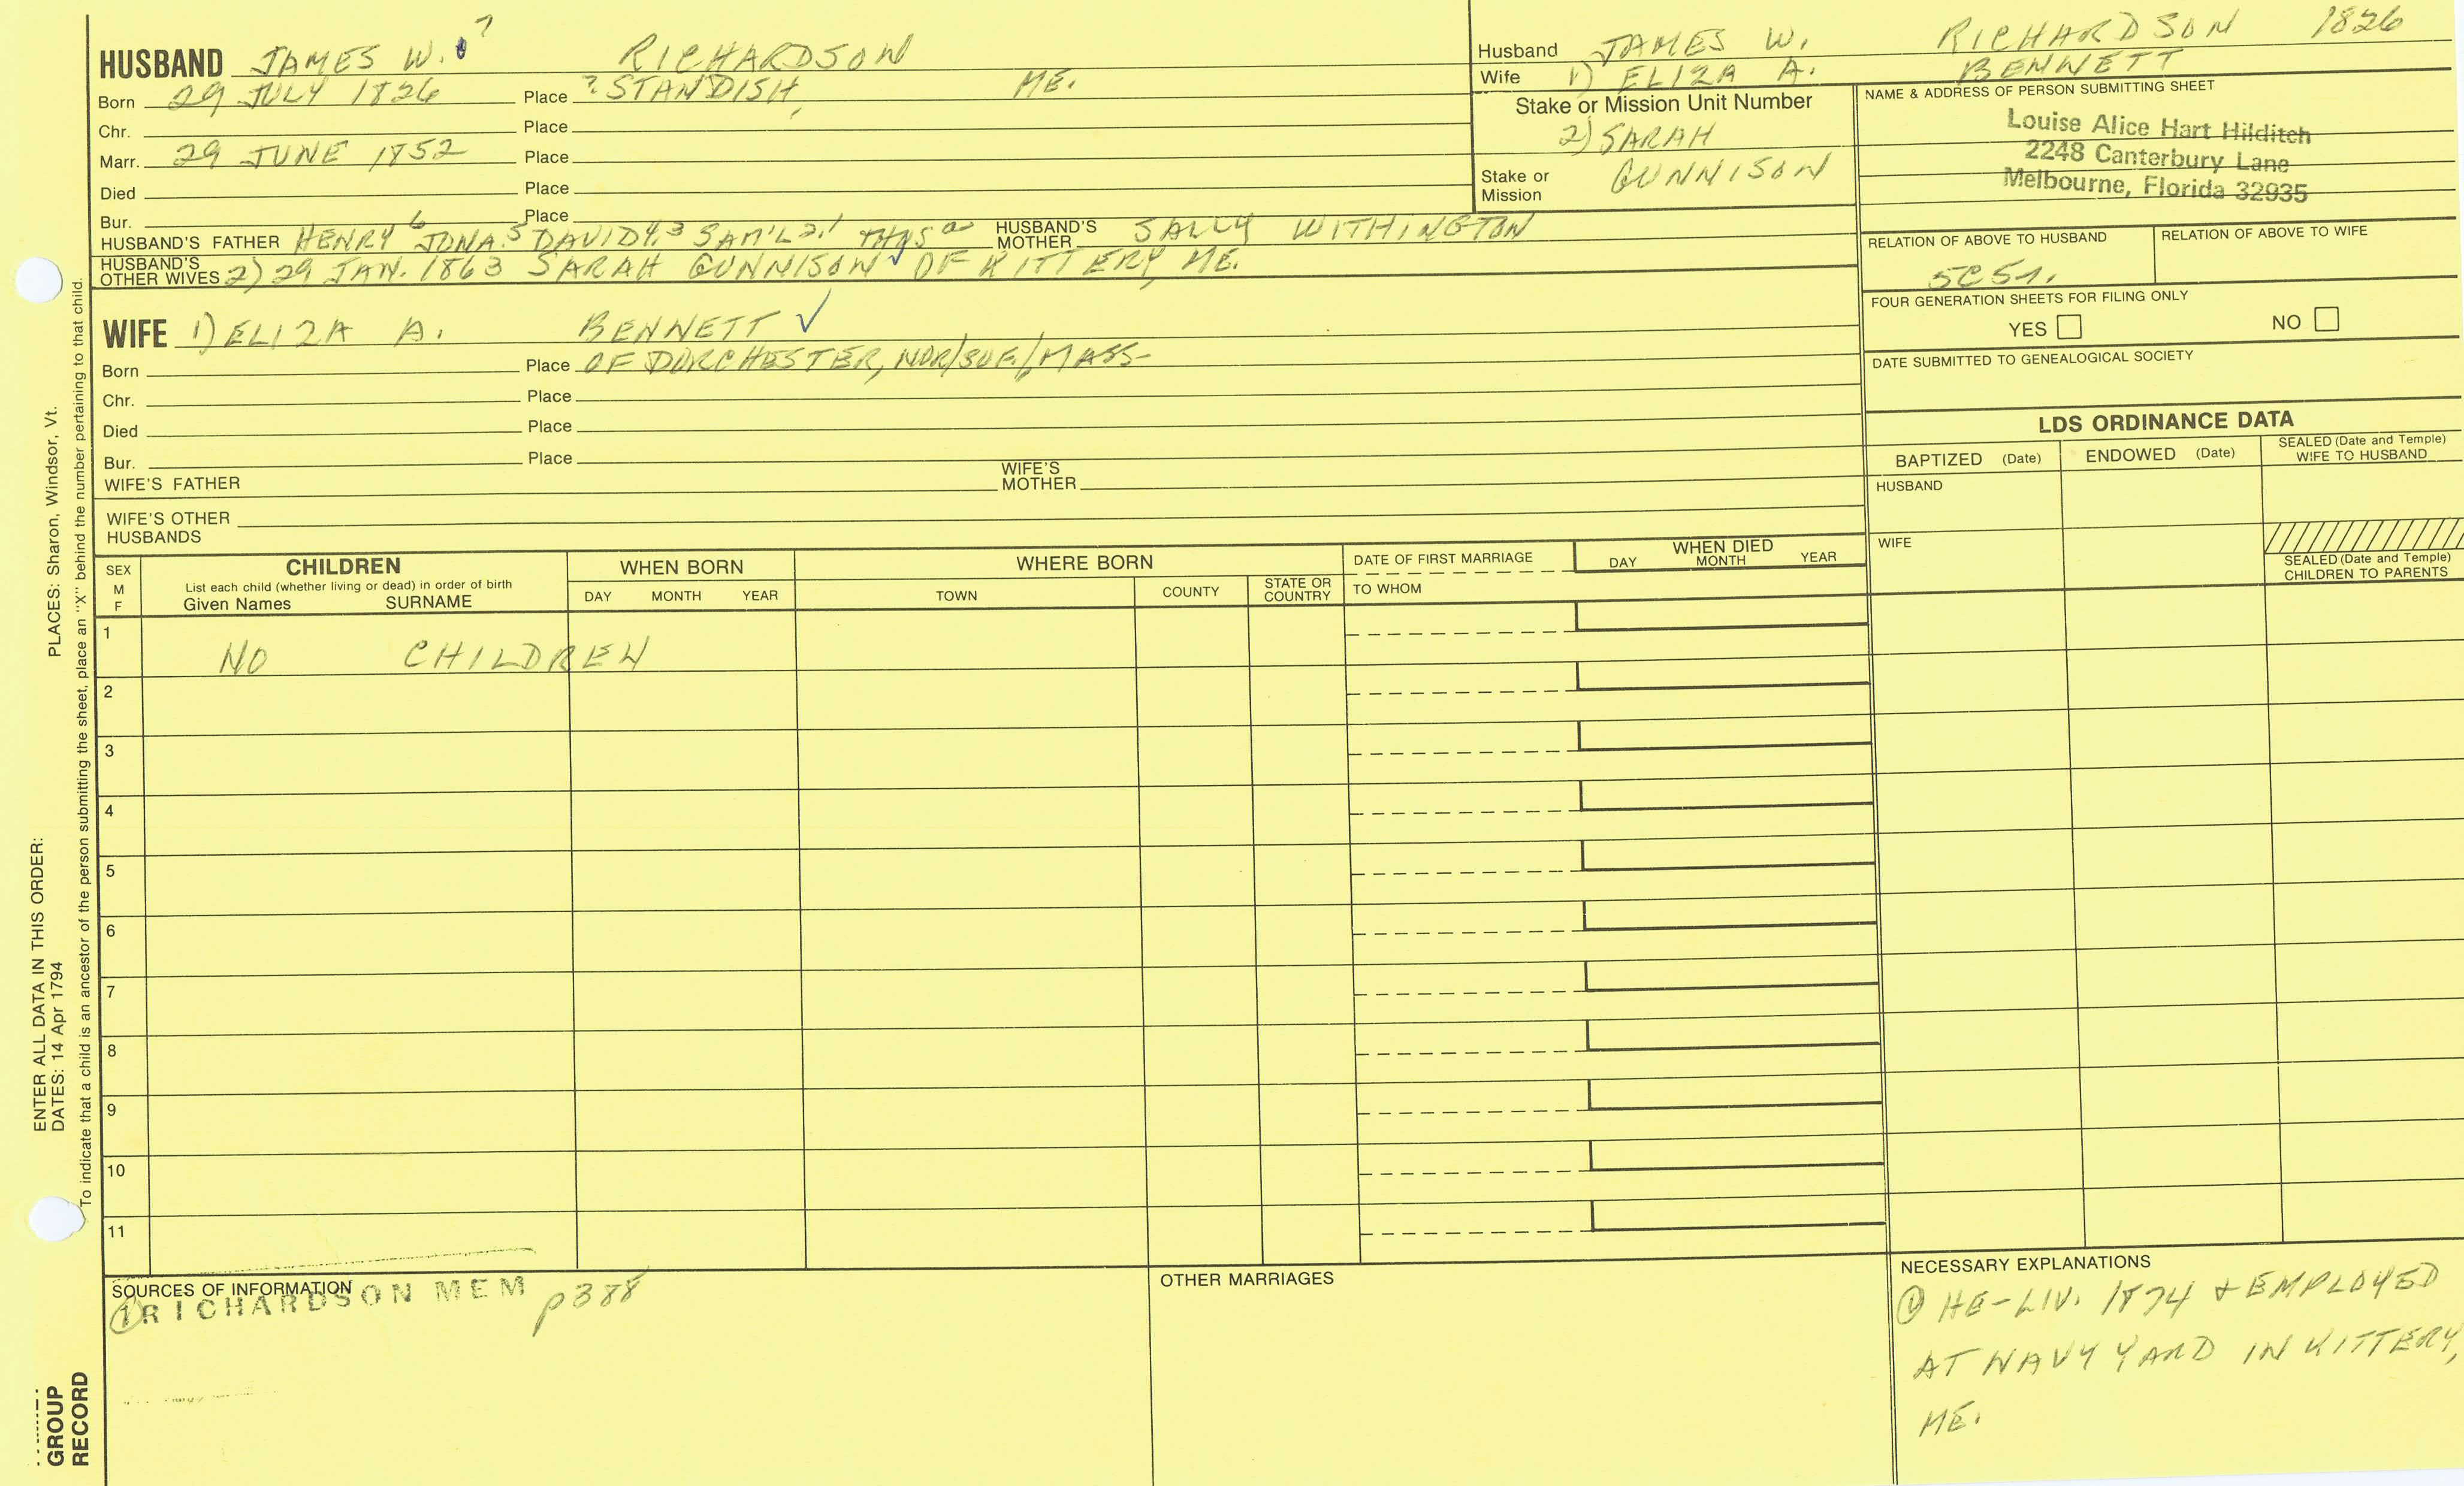 HUSBAND JAMES W. ? RICHARDSON
Born 29 JULY 1826 Place ? STANDISH, ME.
Chr. Place
Marr. 29 JUNE 1852 Place
Died Place
Bur. Place
HUSBAND'S FATHER HENRY 6 JONA. 5 DAVID 4, 3 SAM'L 2, 1 HUSBAND'S MOTHER SALLY WITHINGTON
HUSBAND'S OTHER WIVES 2) 29 JAN. 1863 SARAH GUNNISON ✓ OF KITTERY, ME.
Husband JAMES W. RICHARDSON 1826
Wife 1) ELIZA A. BENNETT
Stake or Mission Unit Number
2) SARAH
Stake or Mission GUNNISON
NAME & ADDRESS OF PERSON SUBMITTING SHEET
Louise Alice Hart Hilditch
2248 Canterbury Lane
Melbourne, Florida 32935
RELATION OF ABOVE TO HUSBAND RELATION OF ABOVE TO WIFE
5C5
FOUR GENERATION SHEETS FOR FILING ONLY
YES NO
DATE SUBMITTED TO GENEALOGICAL SOCIETY
WIFE 1) ELIZA A. BENNETT ✓
Born Place OF DORCHESTER, NOR/SUF./MASS-
Chr. Place
Died Place
Bur. Place
WIFE'S FATHER WIFE'S MOTHER
WIFE'S OTHER HUSBANDS
LDS ORDINANCE DATA
BAPTIZED (Date) ENDOWED (Date) SEALED (Date and Temple) WIFE TO HUSBAND
HUSBAND
WIFE
SEALED (Date and Temple) CHILDREN TO PARENTS
SEX M F
CHILDREN
List each child (whether living or dead) in order of birth
Given Names SURNAME
WHEN BORN
DAY MONTH YEAR
WHERE BORN
TOWN COUNTY STATE OR COUNTRY
DATE OF FIRST MARRIAGE
TO WHOM
WHEN DIED
DAY MONTH YEAR
1 NO CHILDREN
2
3
4
5
6
7
8
9
10
11
SOURCES OF INFORMATION
① RICHARDSON MEM p388
OTHER MARRIAGES
NECESSARY EXPLANATIONS
① HE-LIV. 1874 + EMPLOYED
AT NAVY YARD IN KITTERY,
ME.
ENTER ALL DATA IN THIS ORDER:
DATES: 14 Apr 1794 PLACES: Sharon, Windsor, Vt.
To indicate that a child is an ancestor of the person submitting the sheet, place an "X" behind the number pertaining to that child.
GROUP
RECORD